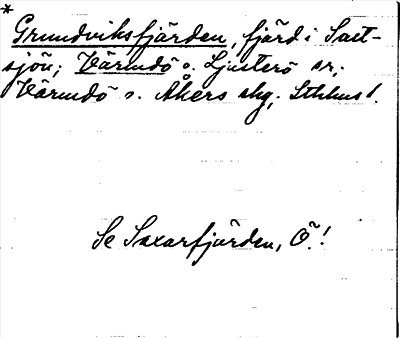 *
Grundviksfjärden, fjärd i Salt-
sjön; Värmdö o. Ljusterö sr;
Värmdö o. Åkers skg; Sthlms l.
Se Saxarfjärden, Ö.!